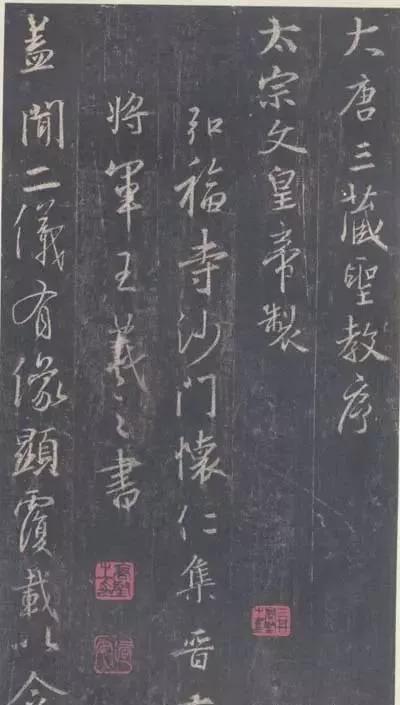 大唐三藏聖教序
太宗文皇帝製
弘福寺沙門懷仁集晉
將軍王羲之書
蓋聞二儀有像顯覆載以含